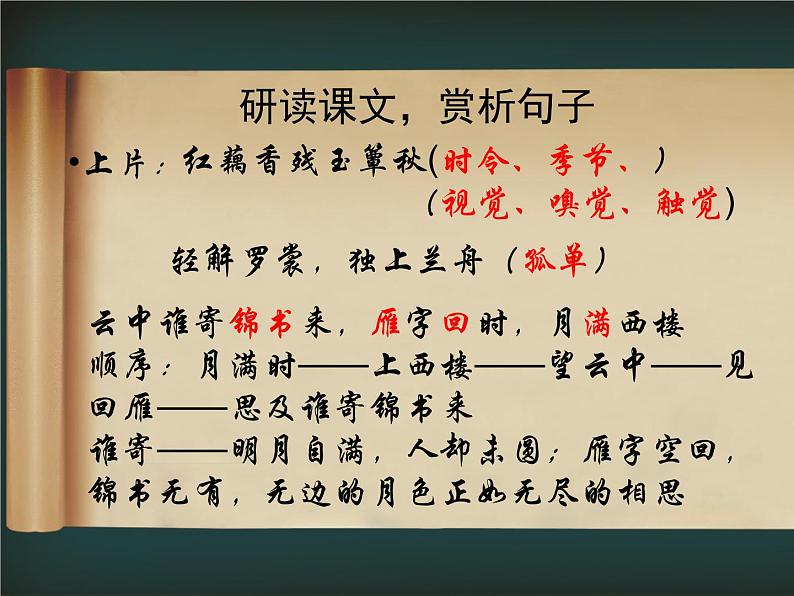 研读课文，赏析句子
•上片：红藕香残玉簟秋(时令、季节、）
（视觉、嗅觉、触觉)
轻解罗裳，独上兰舟（孤单）
云中谁寄锦书来，雁字回时，月满西楼
顺序：月满时——上西楼——望云中——见
回雁——思及谁寄锦书来
谁寄——明月自满，人却未圆；雁字空回，
锦书无有，无边的月色正如无尽的相思